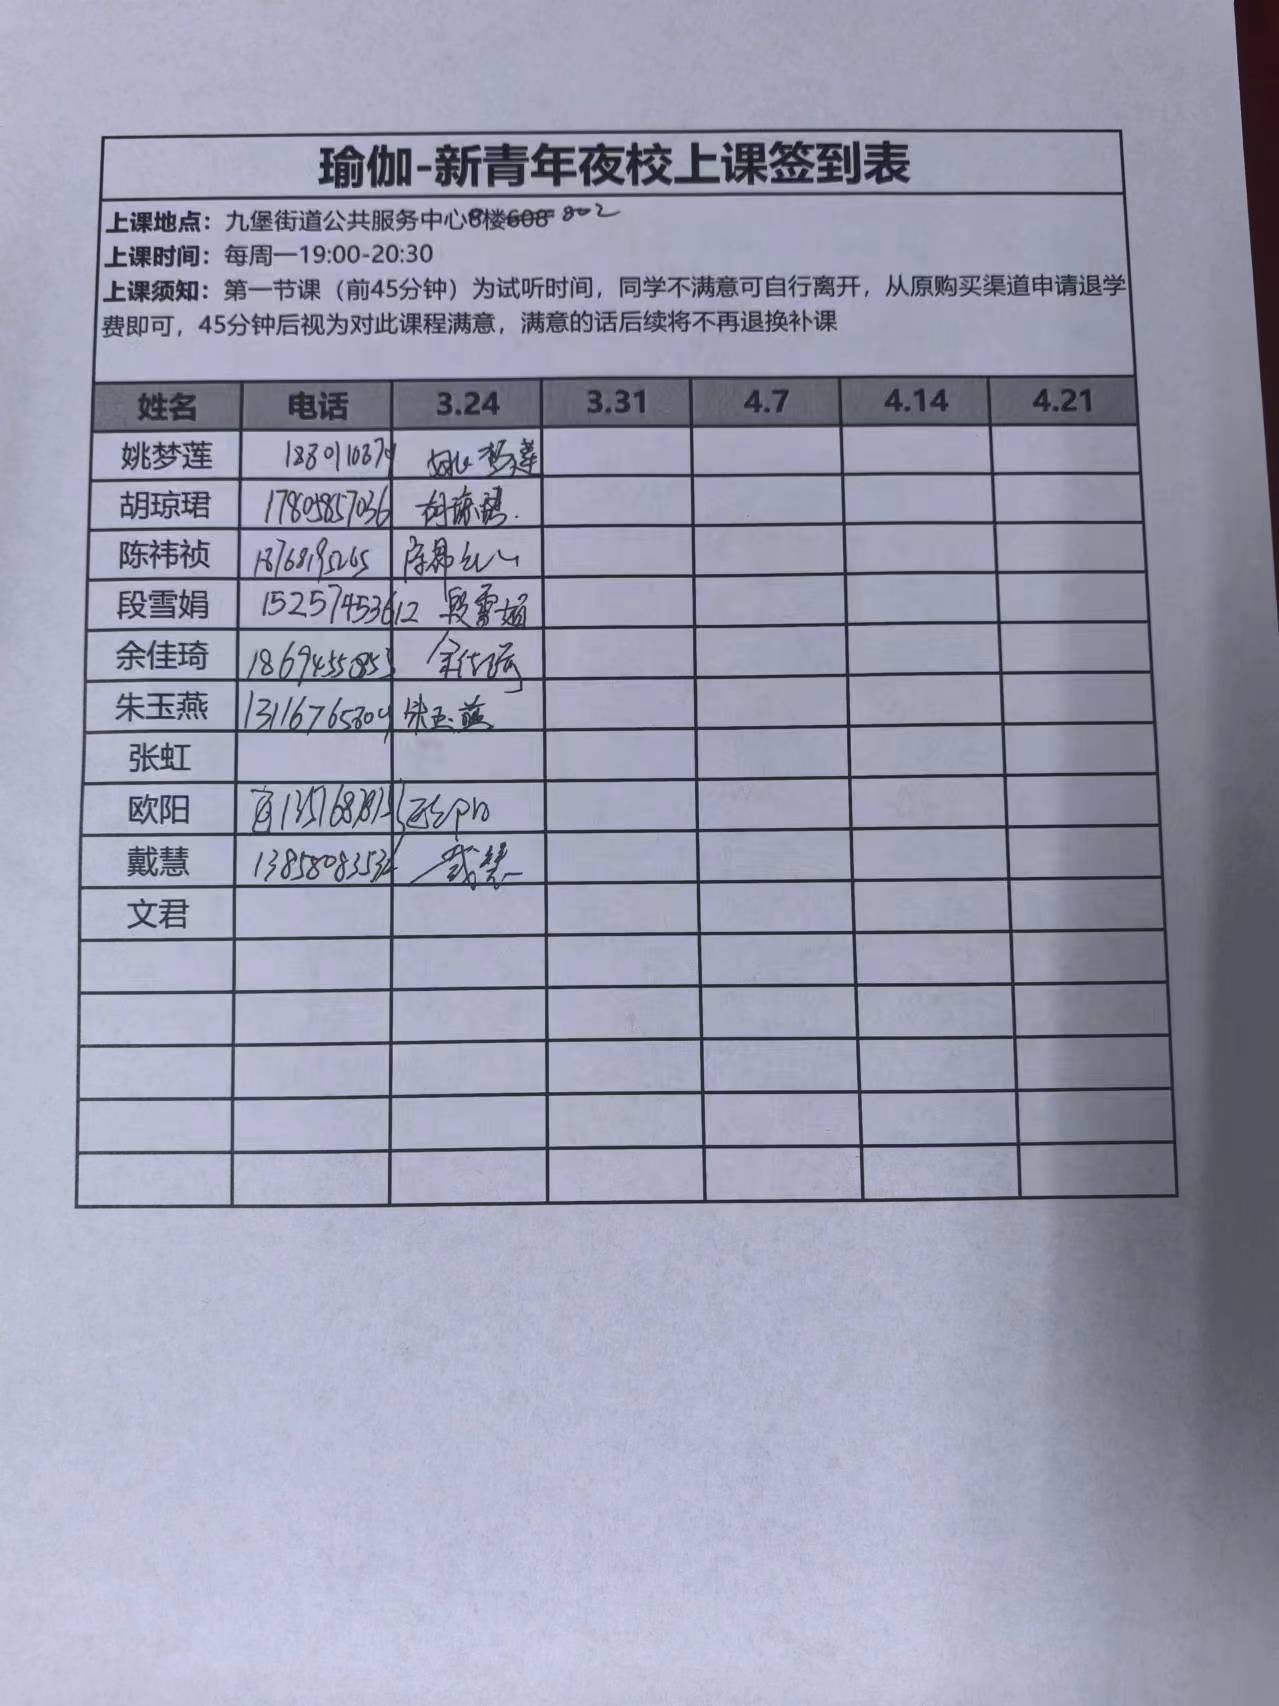 瑜伽-新青年夜校上课签到表
上课地点：九堡街道公共服务中心8楼608 802
上课时间：每周一19:00-20:30
上课须知：第一节课（前45分钟）为试听时间，同学不满意可自行离开，从原购买渠道申请退学
费即可，45分钟后视为对此课程满意，满意的话后续将不再退换补课
姓名 电话 3.24 3.31 4.7 4.14 4.21
姚梦莲 姚梦莲
胡琼珺 17805857036 胡琼珺
陈祎祯 18768195265
段雪娟 15257453612 段雪娟
余佳琦 余佳琦
朱玉燕 13116765304 朱玉燕
张虹
欧阳
戴慧 戴慧
文君